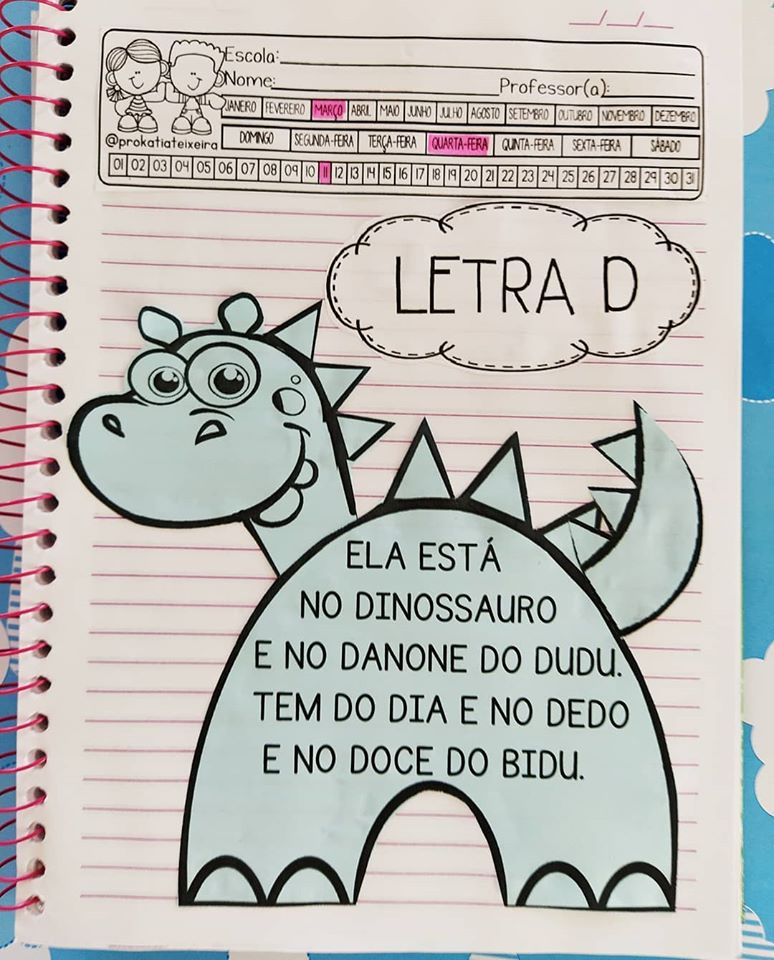 __/__/__
Escola:
Nome: Professor(a):
JANEIRO FEVEREIRO MARÇO ABRIL MAIO JUNHO JULHO AGOSTO SETEMBRO OUTUBRO NOVEMBRO DEZEMBRO
@prokatiateixeira DOMINGO SEGUNDA-FEIRA TERÇA-FEIRA QUARTA-FEIRA QUINTA-FEIRA SEXTA-FEIRA SÁBADO
01 02 03 04 05 06 07 08 09 10 11 12 13 14 15 16 17 18 19 20 21 22 23 24 25 26 27 28 29 30 31
LETRA D
ELA ESTÁ
NO DINOSSAURO
E NO DANONE DO DUDU.
TEM DO DIA E NO DEDO
E NO DOCE DO BIDU.